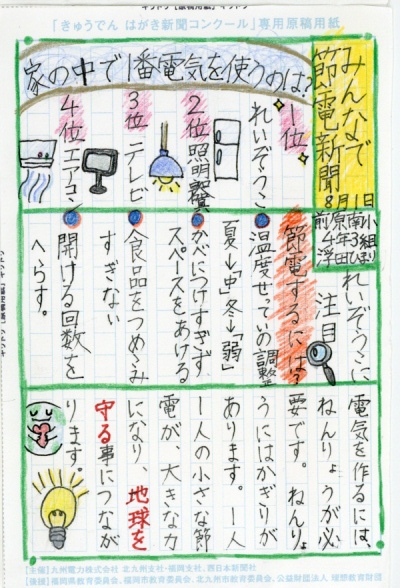 「きゅうでん はがき新聞コンクール」専用原稿用紙
みんなで
節電新聞
8月1日
家の中で1番電気を使うのは?
1位
れいぞうこ
2位
照明器具
3位
テレビ
4位
エアコン
れいぞうこに
注目
節電するには?
温度せっていの調整
夏→「中」冬→「弱」
かべにつけすぎず
スペースをあける
食品をつめこみ
すぎない
開ける回数を
へらす。
電気を作るには、
ねんりょうが必
要です。ねんりょ
うにはかぎりが
あります。一人
一人の小さな節
電が、大きな力
になり、地球を
守る事につなが
ります。
[主催]九州電力株式会社 北九州支社・福岡支社、西日本新聞社
[後援]福岡県教育委員会、福岡市教育委員会、北九州市教育委員会、公益財団法人 理想教育財団